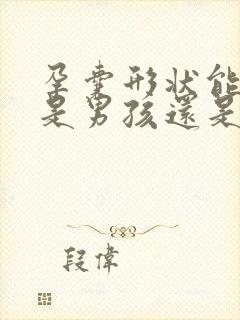 孕囊形狀能
是男孩還是
段偉